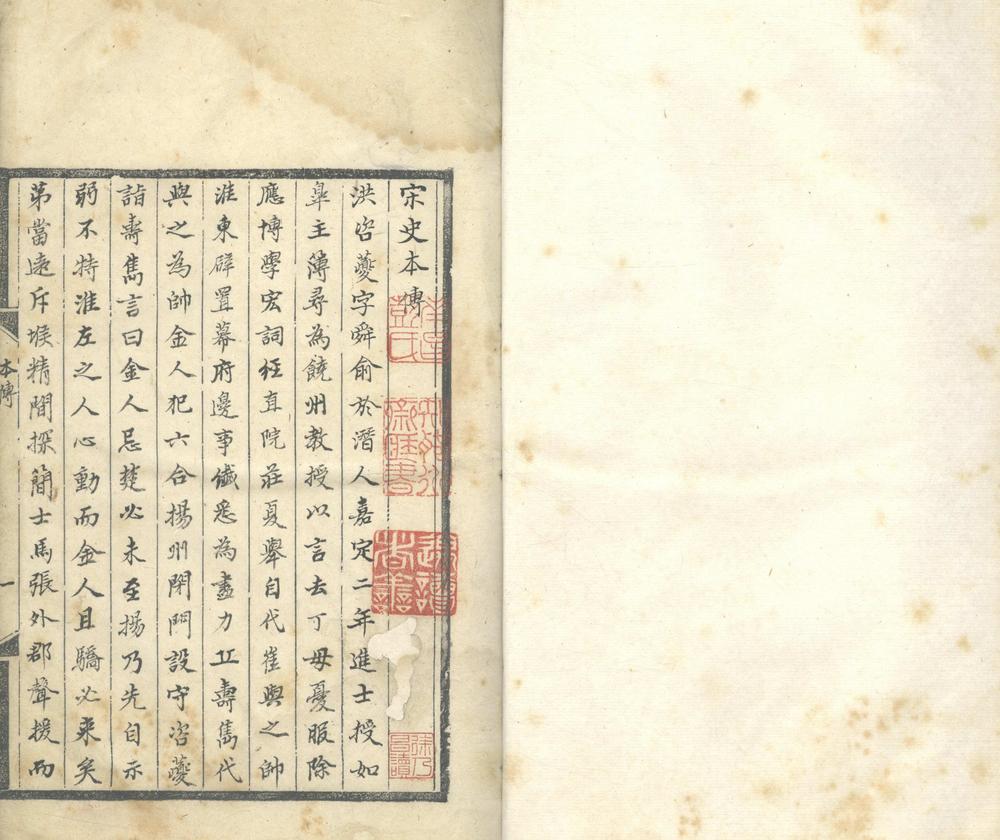 宋史本傳
洪咨夔字舜俞於潛人嘉定二年進士授如
臯主薄尋為饒州教授以言去丁母憂服除
應博學宏詞科直院莊夏舉自代崔與之帥
淮東辟置幕府邊事纖悉為盡力丘壽雋代
與之為帥金人犯六合揚州閉門設守咨夔
詣壽雋言曰金人忌楚必未至揚乃先自示
弱不特淮左之人心動而金人且驕必來矣
第當遠斥堠精間探簡士馬張外郡聲援而
本傳
一